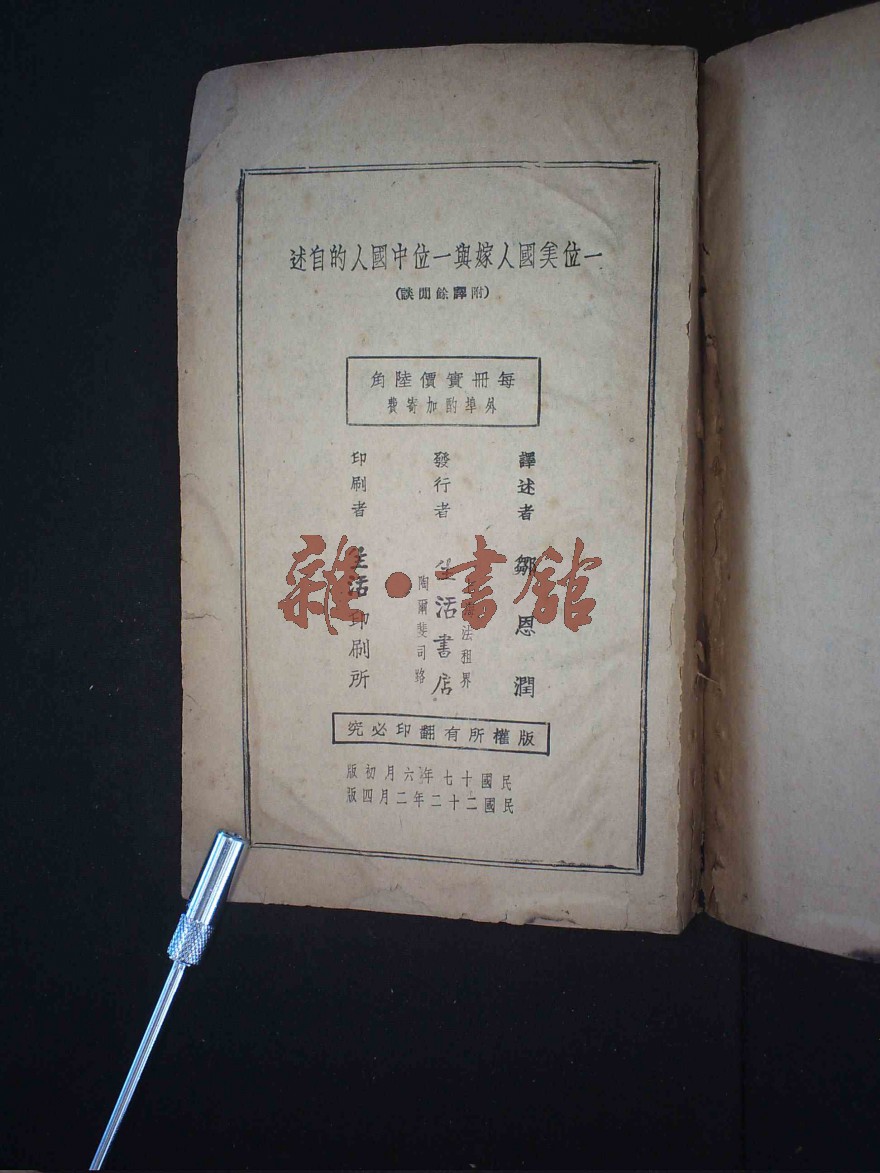 一位美國人嫁與一位中國人的自述
(附譯餘閒談)
每冊實價陸角
外埠酌加寄費
譯述者 鄒恩潤
發行者 生活書店
海法租界
陶爾斐司路
印刷者 生活印刷所
雜·書館
版權所有翻印必究
民國十七年六月初版
民國二十二年二月四版